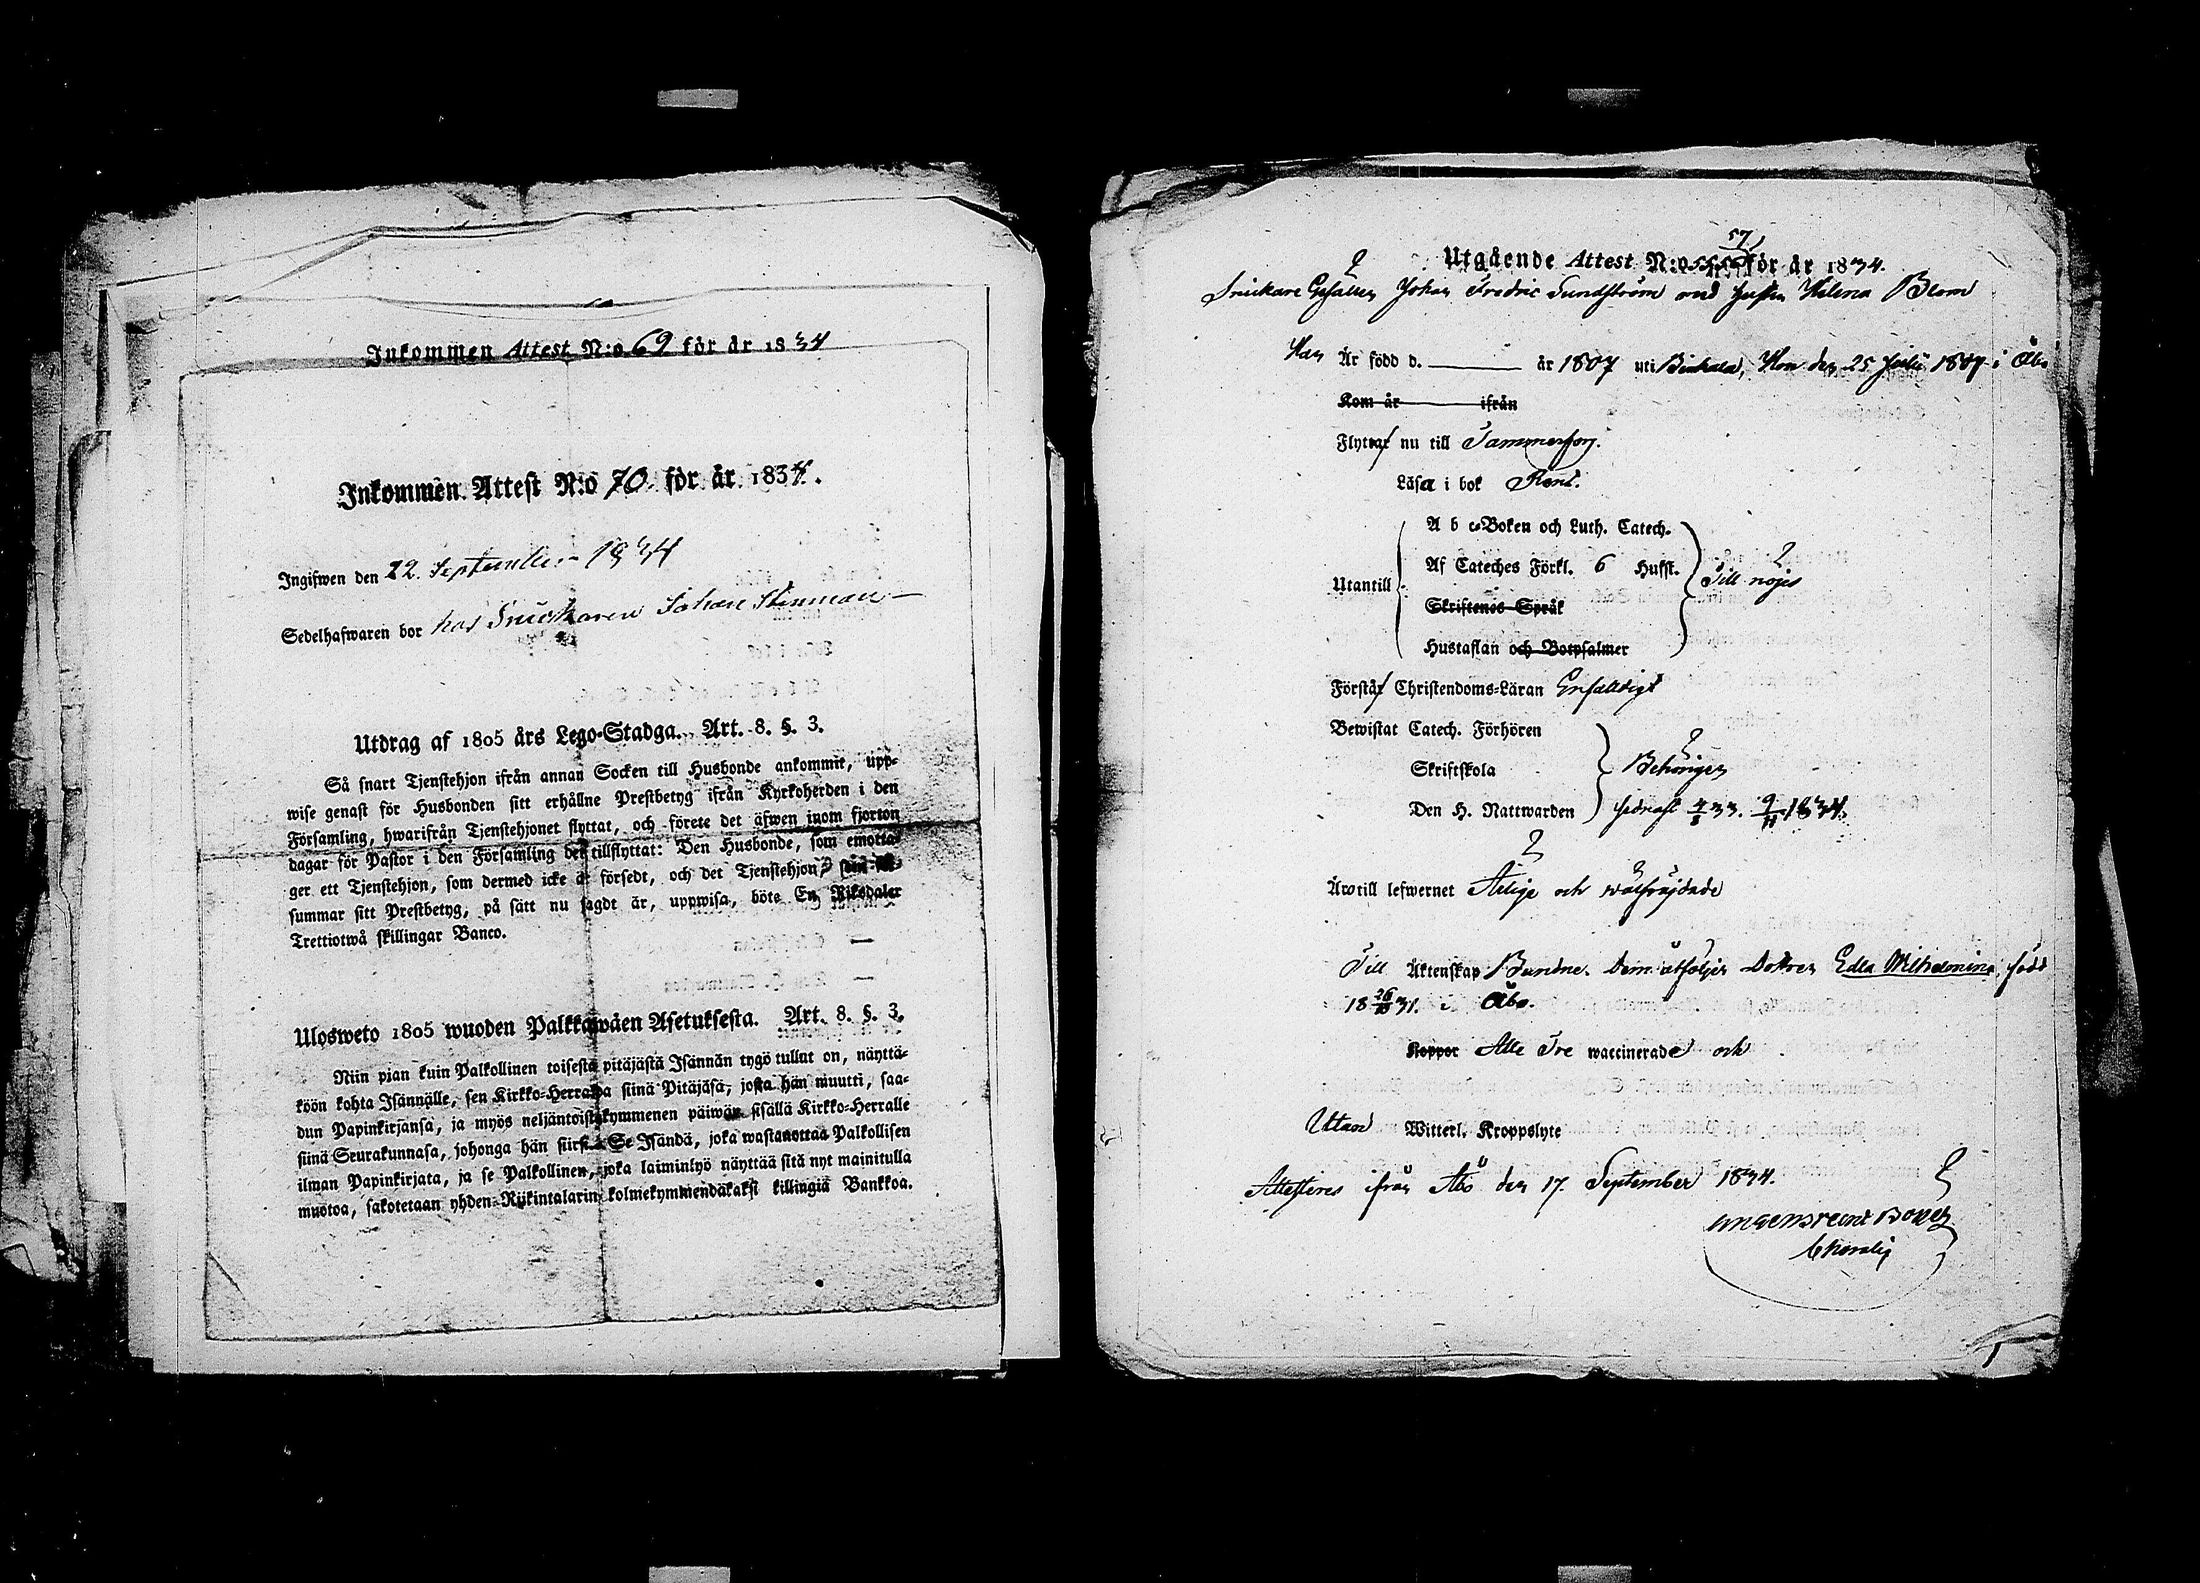 Inkommen Attest N:o 69 för år 1834
Inkommen Attest N:o 70 för år 1834.
Ingifwen den 22. September 1834
Sedelhafwaren bor hos Snickaren Johan Stenman
Utdrag af 1805 års Lego-Stadga. Art. 8. §. 3.
Så snart Tjenstehjon ifrån annan Socken till Husbonde ankommit, upp-
wise genast för Husbonden sitt erhållne Prestbetyg ifrån Kyrkoherden i den
Församling, hwarifrån Tjenstehjonet flyttat, och förete det äfwen inom fjorton
dagar för Pastor i den Församling det tillflyttat: Den Husbonde, som emotta-
ger ett Tjenstehjon, som dermed icke är försedt, och det Tjenstehjon, som för-
summar sitt Prestbetyg, på sätt nu sagdt är, uppwisa, böte En Riksdaler
Trettiotwå skillingar Banco.
Ulosweto 1805 wuoden Palkkawäen Asetuksesta. Art. 8. §. 3.
Niin pian kuin Palkollinen toisesta pitäjästä Isännän tygö tullut on, näyttä-
köön kohta Isännälle, sen Kirkko-Herralda siinä Pitäjäsä, josta hän muutti, saa-
dun Papinkirjansa, ja myös neljäntoistakymmenen päiwän sisällä Kirkko-Herralle
siinä Seurakunnasa, johonga hän siirsi. Se Isändä, joka wastanottaa Palkollisen
ilman Papinkirjata, ja se Palkollinen, joka laiminlyö näyttää sitä nyt mainitulla
muotoa, sakotetaan yhden Rijkintalarin kolmekymmendäkaksi killingiä Bankkoa.
57
Utgående Attest N:o för år 1834.
Snickare Gesällen Johan Fredric Sundström med hustru Helena Blom
Han Är född d. år 1807 uti Binkala, Hon den 25 Julii 1807 i Åbo
Kom år ifrån
Flytta nu till Tammerfors.
Läsa i bok Rent.
A b c-Boken och Luth. Catech.
Utantill Af Cateches Förkl. 6 Hufst. Till nöjes
Skriftenes Språk
Hustaflan och Botpsalmer
Förstå Christendoms-Läran Enfaldigt
Bewistat Catech. Förhören
Skriftskola Behörigen
Den H. Nattwarden sednast 4/8 33. 9/11 1834.
Äro till lefwernet Ärlige och wälfräjdade
Till Äktenskap Bundne. Dem åtföljer Dottren Edla Wilhelmina, född
18 26/10 31. i Åbo.
Koppor Alla Tre waccinerade och
Utan Witterl. Kroppslyte
Attesteres ifrån Åbo den 17. September 1834.